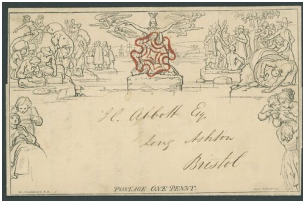 H. C. Abbott Esq.
Long Ashton
Bristol
POSTAGE ONE PENNY.